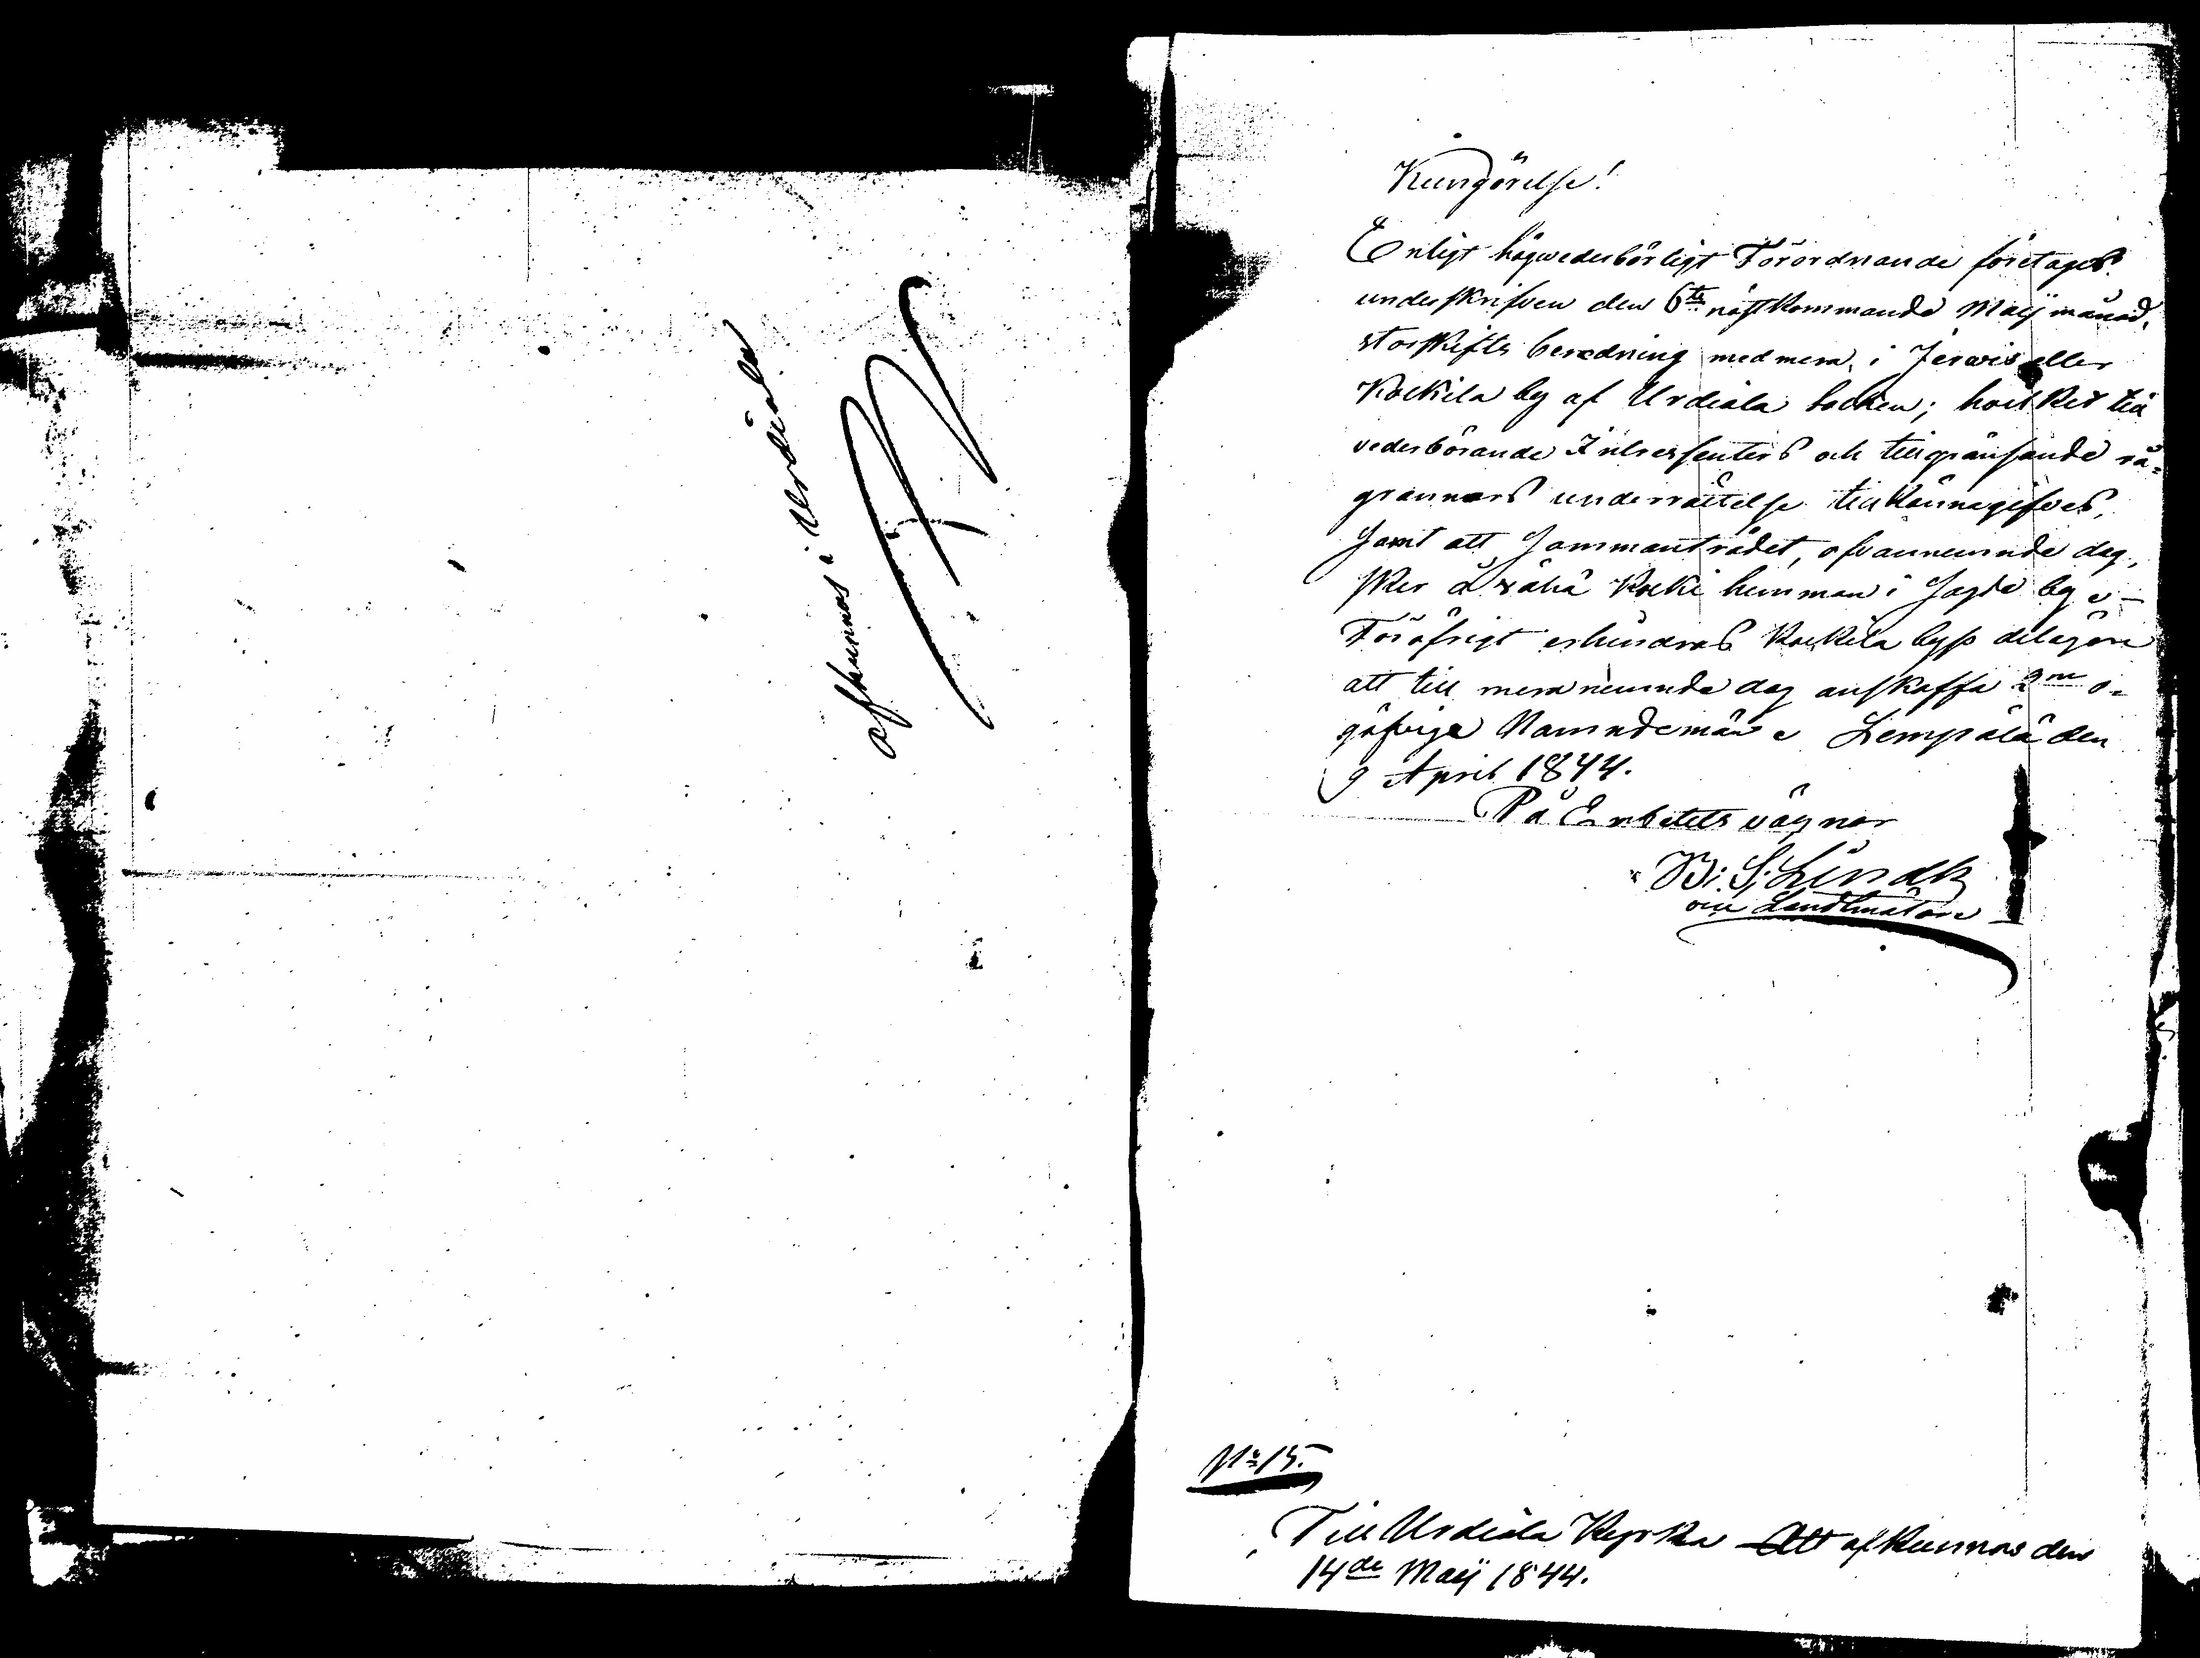 afkunnas i Urdiala
Kungörelse!
Enligt högwederbörligt Förordnande företages
underskrifven den 6te nästkommande Maij månad,
storskifts beredning med mera, i Jerwis eller
Kockila by af Urdiala Socken; hvilket till
vederbörande Interessenters och tillgränsande rå=
grannars underrättelse tillkännagifves,
samt att sammanträdet, ofvannemnde dag,
sker å Kocki hemman i sagde by
Föröfrigt erhindras Kockila byss delägare
att till meranemnde dag anskaffa 2ne o=
gäfvige Nämndemän Lempälä den
9 April 1844.
På Embetets vägnar
Lindh
Landtmätare
No 15.
Till Urdiala Kyrka Att afkunnas den
14de Maij 1844.